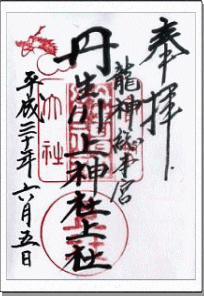 奉拝
龍神総本宮
丹生川上神社上社
平成三十年六月五日